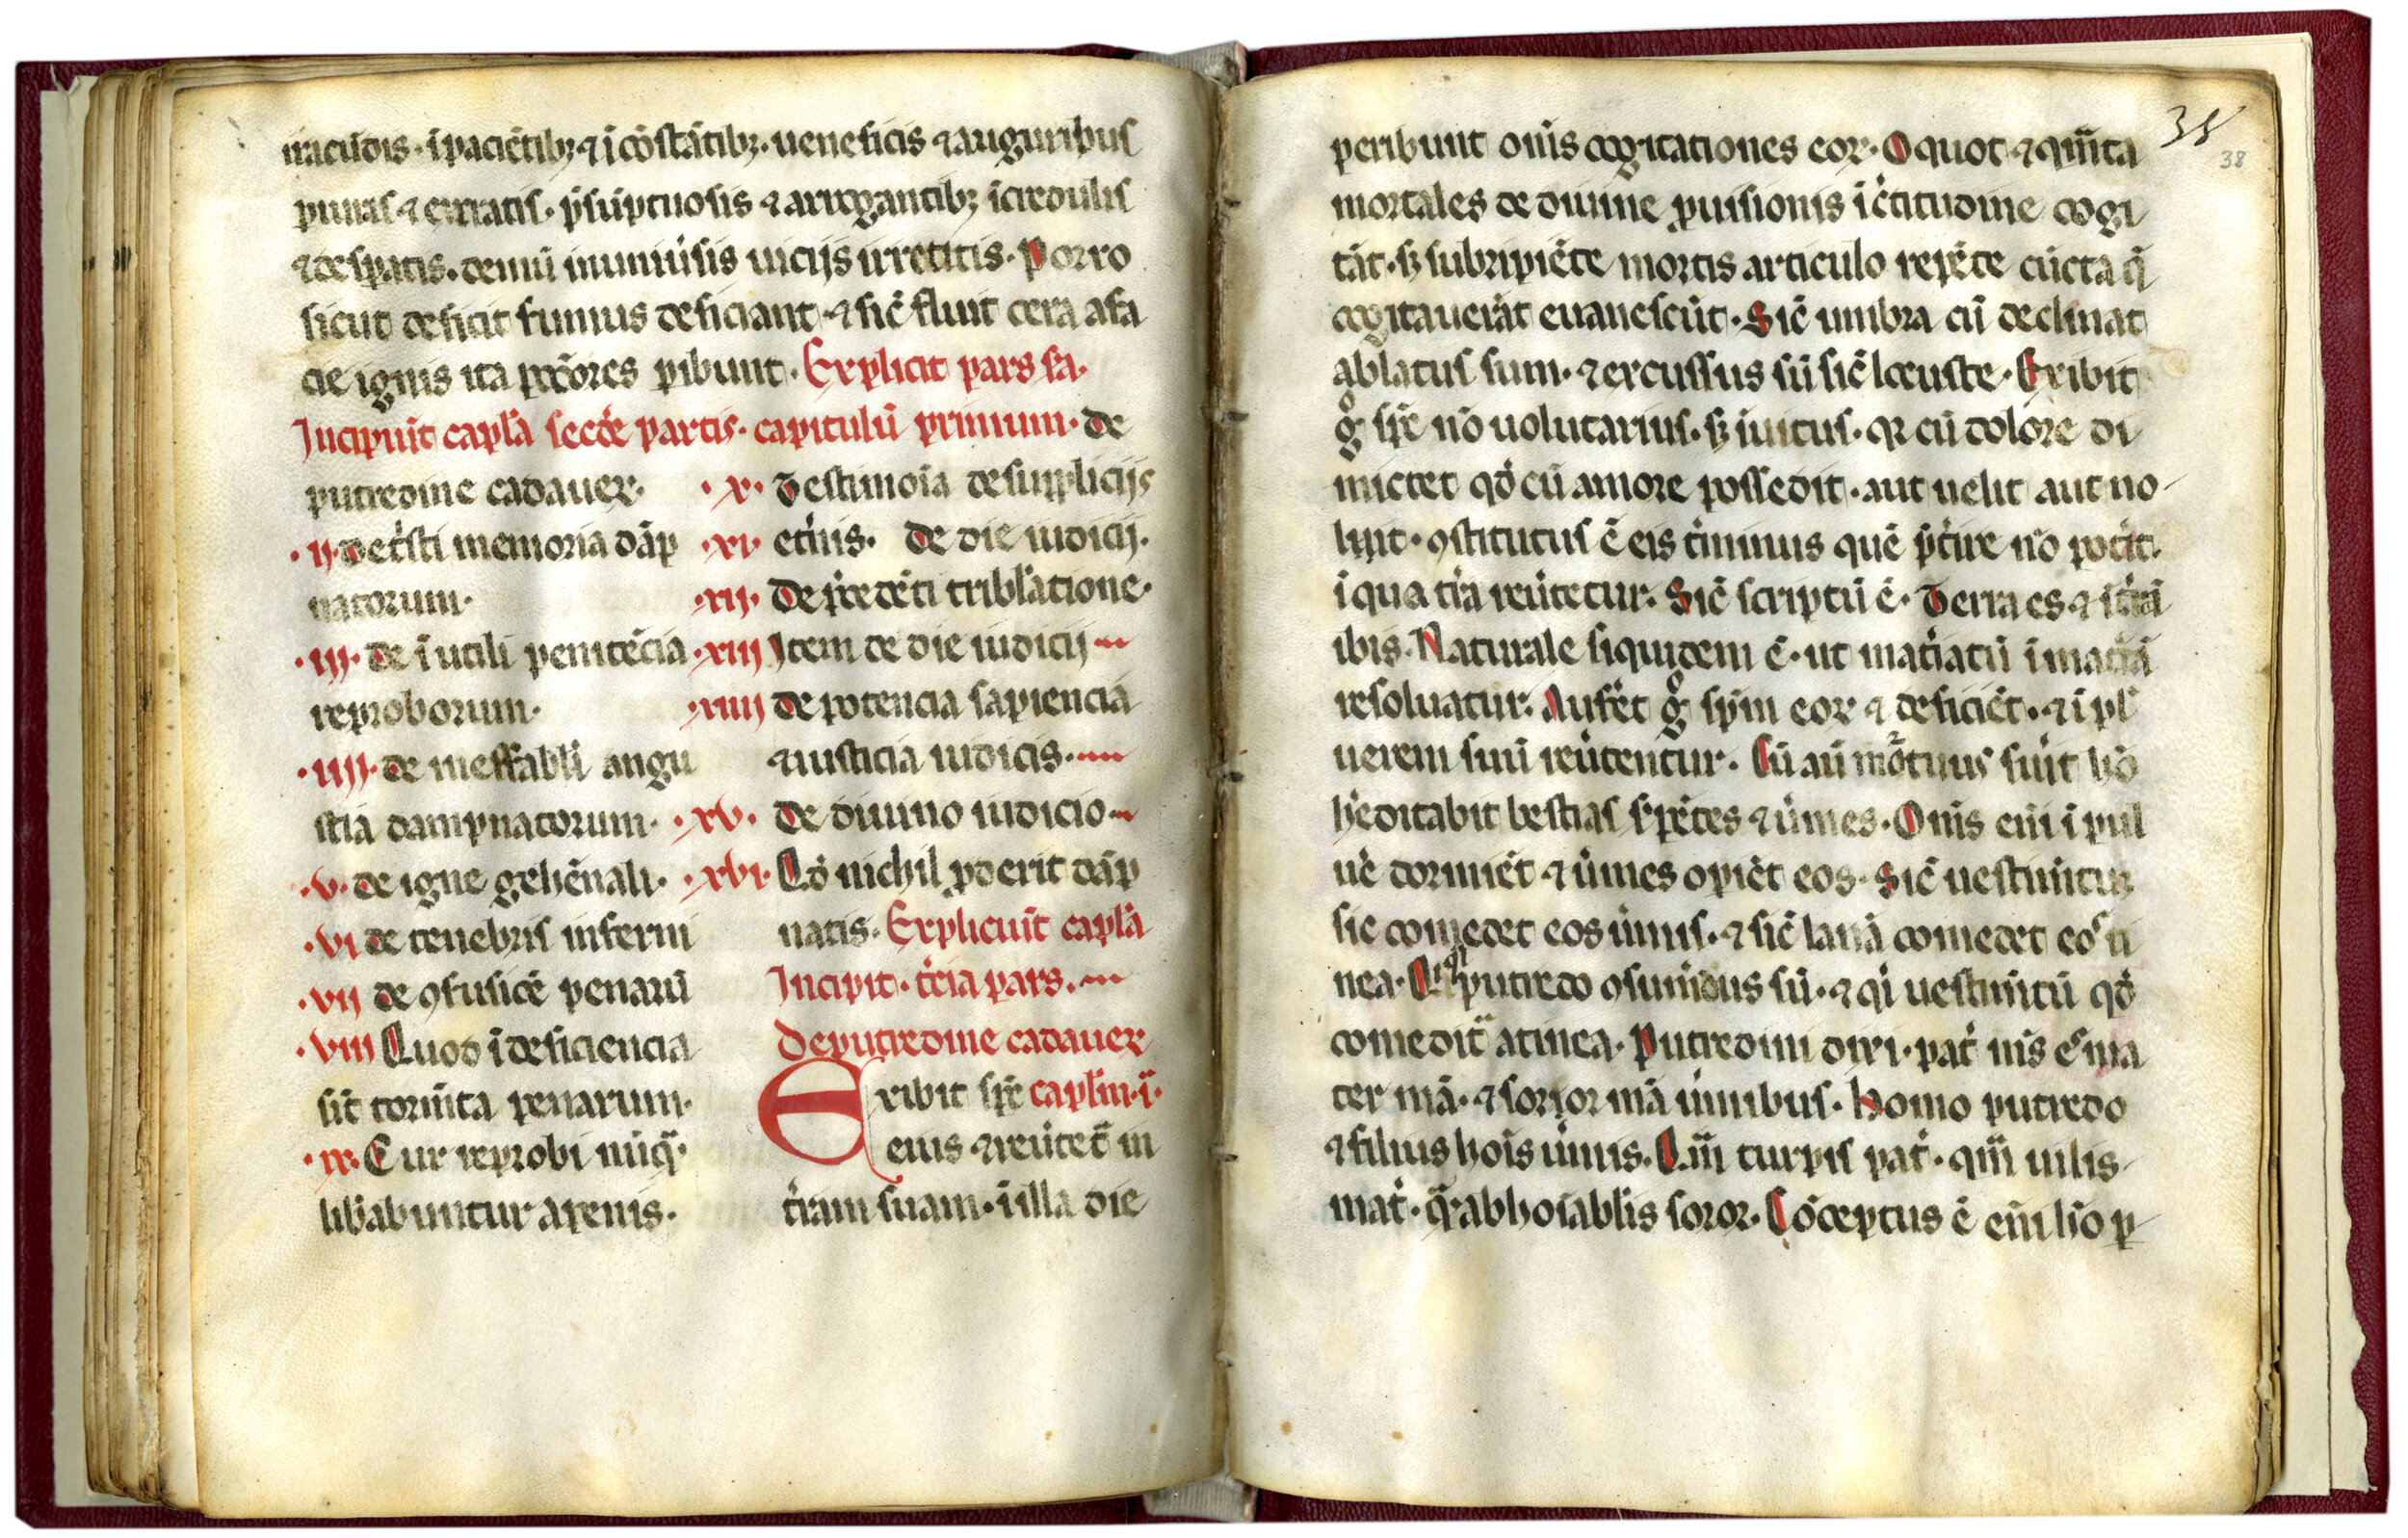 iracūdis · ī paciētibꝫ ⁊ ī cōstātibꝫ · ueneficis ⁊ auguribus
⁊ desꝑatis · demū inumūsis uicijs irretitis · Porro
sicut deficit fumus deficiant · ⁊ sic̄ fluit cera a fa
cie ignis ita pctōres ꝑibunt · Explicit pars sa ·
Incipiūt capl̄a secd̄e partis · capitulū primum · de
putredine cadauerꝝ ·
· ij · De tͥsti memoria dāp
natorum ·
· iij · De ī utili penitēcia
reproborum ·
· iiij · De ineffabli angu
stia dampnatorum ·
· v · De igne gehēnali ·
· vi De tenebris inferni
· vii De ꝯfusiōe penarū
· viii Quod ī deficiencia
sīt torm̄ta penarum ·
· ix · Cur reprobi nūq̄ ·
lib̓abuntur a penis ·
· x · Testimoīa de supplicijs
· xi · et̓nis · De die iudicij ·
· xii · De p̄cedēti tribl̄atione ·
· xiii Item de die iudicij
· xiiii De potencia sapiencia
⁊ iusticia iudicis ·
· xv · De diuino iudicio
· xvi · Qd̓ nichil ꝓderit dāp
natis · Explicūit capl̄a
Incipit · t̓cia pars ·
De putredine cadauerꝝ
Exibit sp̄c capl̄m · i ·
eius ⁊ reūtet̄ in
t̓ram suam · ī illa die
38
38
peribunt om̄s cogitationes eoꝝ · O quot ⁊ qͣnta
mortales de diuine ꝓuisionis īc̓titudine cogi
tāt · sꝫ subripiēte mortis articulo repēte cūcta q̄
cogitauerāt euanescūt · Sic̄ umbra cū declinat
ablatus sum · ⁊ excussus sū sic̄ locuste · Exibit
gͦ sp̄c nō uolūtarius · sꝫ īuitus · qꝛ cū dolore di
mictet qd̓ cū amore possedit · aut uelit aut no
lit · ꝯstitutus ē eis t̓minus quē p̄t̓ire nō pot̓it ·
ī qua t̓ra reūtetur · Sic̄ scriptū ē · Terra es · ⁊ ī t̓rā
ibis · Naturale siquidem ē · ut mat̓iatū ī mat̓iā
resoluatur · Aufēt gͦ sp̄m eoꝝ ⁊ deficiēt · ⁊ ī pl̓
uerem suū reūtentur · Cū aū mōtuus fūit hō
h̓editabit bestias s̓pētes ⁊ ūmes · Om̄s enī ī pul
ue̓ dormiēt ⁊ ūmes opiēt eos · Sic̄ uestimtū
sic comedet eos ūmis · ⁊ sic̄ lanā comedet eos ti
nea · Qͥ qͣ putredo ꝯsumēdus sū · ⁊ qͥ uestimtū qd̓
comedit̄ a tinea · Putredini dixi · pat̓ m̄s es ma
ter mā · ⁊ soror mā ūmibus · Homo putredo
⁊ filius hoīs ūmis · Qͣm̄ turpis pat̓ · qͣm̄ uilis
mat̓ · qͣ abhoīablis soror · Cōceptus ē enī hō ꝑ